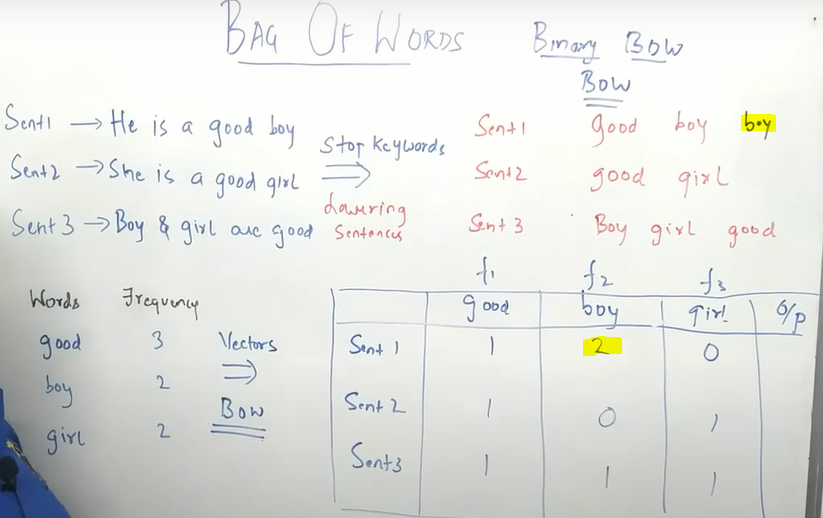 BAG OF WORDS
Binary BOW
BOW
Sent1 → He is a good boy
Sent2 → She is a good girl
Sent 3 → Boy & girl are good
Stop keywords
⇒
Lowering
Sentences
Sent1 good boy boy
Sent2 good girl
Sent 3 Boy girl good
Words Frequency
good 3
boy 2
girl 2
Vectors
⇒
BOW
f1 f2 f3
good boy girl O/p
Sent 1 1 2 0
Sent 2 1 0 1
Sent3 1 1 1